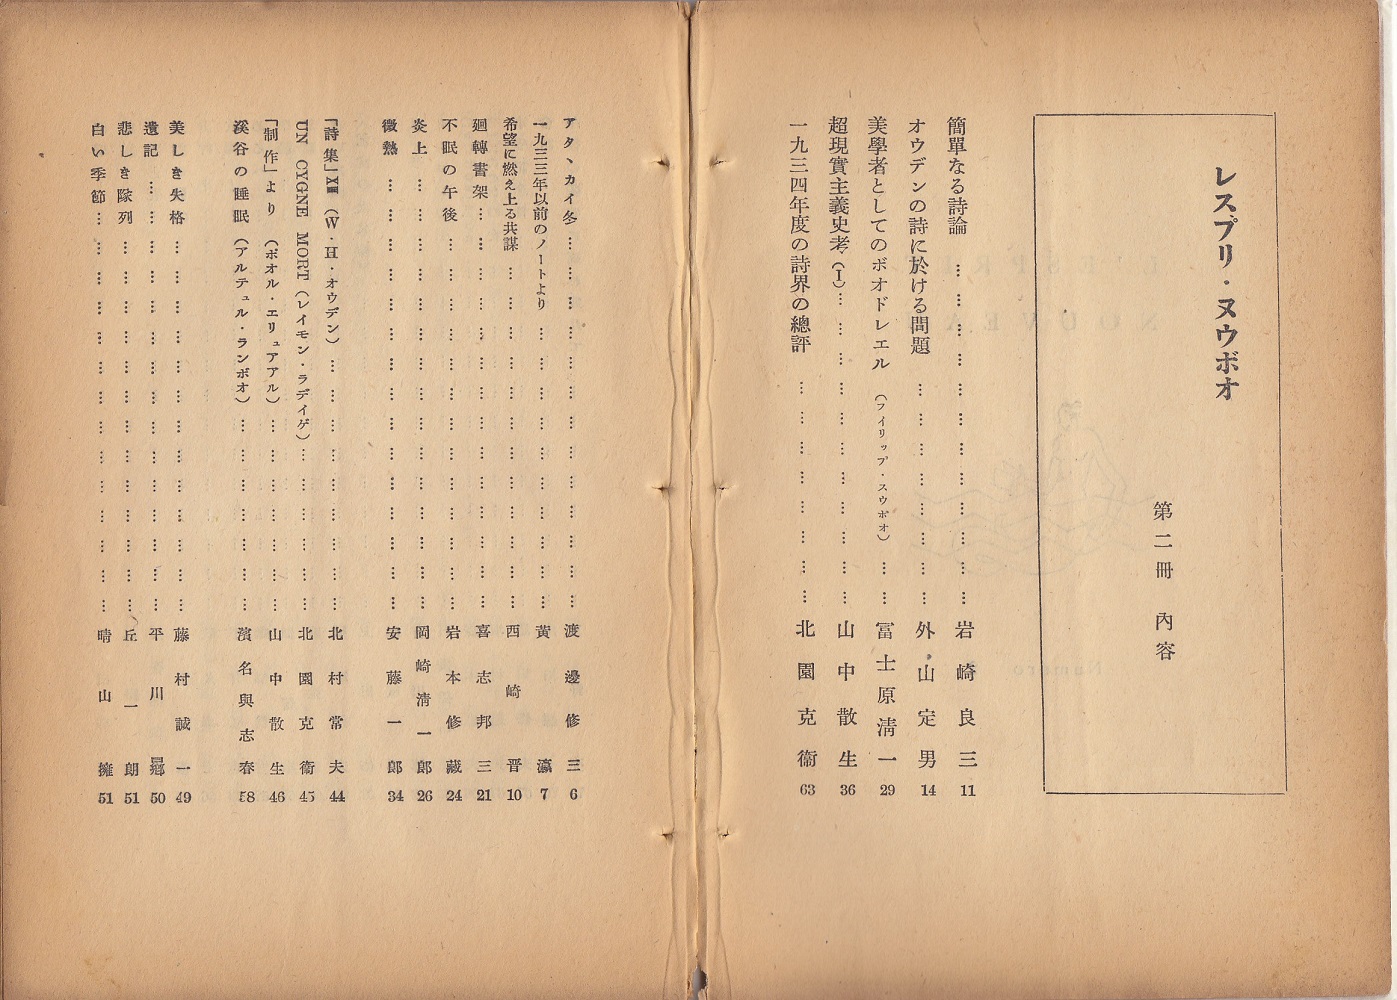 レスプリ・ヌウボオ
第二冊 內容
簡單なる詩論 ……………… 岩崎良三 11
オウデンの詩に於ける問題 ……………… 外山定男 14
美學者としてのボオドレエル （フイリップ・スウボオ） …… 冨士原淸一 29
超現實主義史考（I） ……………… 山中散生 36
一九三四年度の詩界の總評 ……………… 北園克衞 63
アタヽカイ冬 ……………… 渡邊修三 6
一九三三年以前のノートより ……………… 黄瀛 7
希望に燃え上る共謀 ……………… 西崎晋 10
廻轉書架 ……………… 喜志邦三 21
不眠の午後 ……………… 岩本修藏 24
炎上 ……………… 岡崎淸一郎 26
微熱 ……………… 安藤一郎 34
「詩集」XIII （W・H・オウデン） ……………… 北村常夫 44
UN CYGNE MORT （レイモン・ラデイゲ） ……………… 北園克衞 45
「制作」より （ポオル・エリュアアル） ……………… 山中散生 46
溪谷の睡眠 （アルテュル・ランボオ） ……………… 濱名與志春 58
美しき失格 ……………… 藤村誠一 49
遺記 ……………… 平川 50
悲しき隊列 ……………… 丘一朗 51
白い季節 ……………… 晴山擁 51